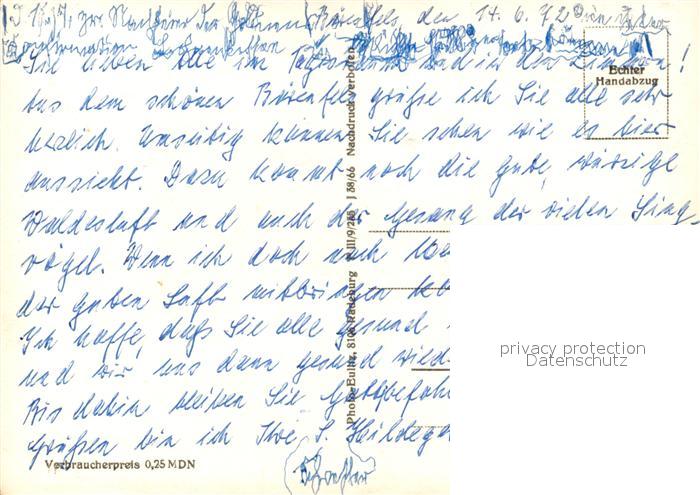 Bärenfels, den 14.6.72
Sie lieben alle im
Aus dem schönen Bärenfels grüße ich Sie alle sehr
herzlich. Umseitig können Sie sehen wie es hier
aussieht. Dazu kommt noch die gute, würzige
Waldesluft und auch der Gesang der vielen Sing-
vögel. Wenn ich doch auch
der guten Luft mitbringen
Ich hoffe, daß Sie alle gesund
und wir uns dann gesund wied
Bis dahin bleiben Sie Gottbefohl
Grüßen bin ich Ihre S. Hildega
Schwester
Echter
Handabzug
Photo-Eulitz, 8106 Radeburg III/9/285 J 38/66 Nachdruck verboten
Verbraucherpreis 0,25 MDN
privacy protection
Datenschutz